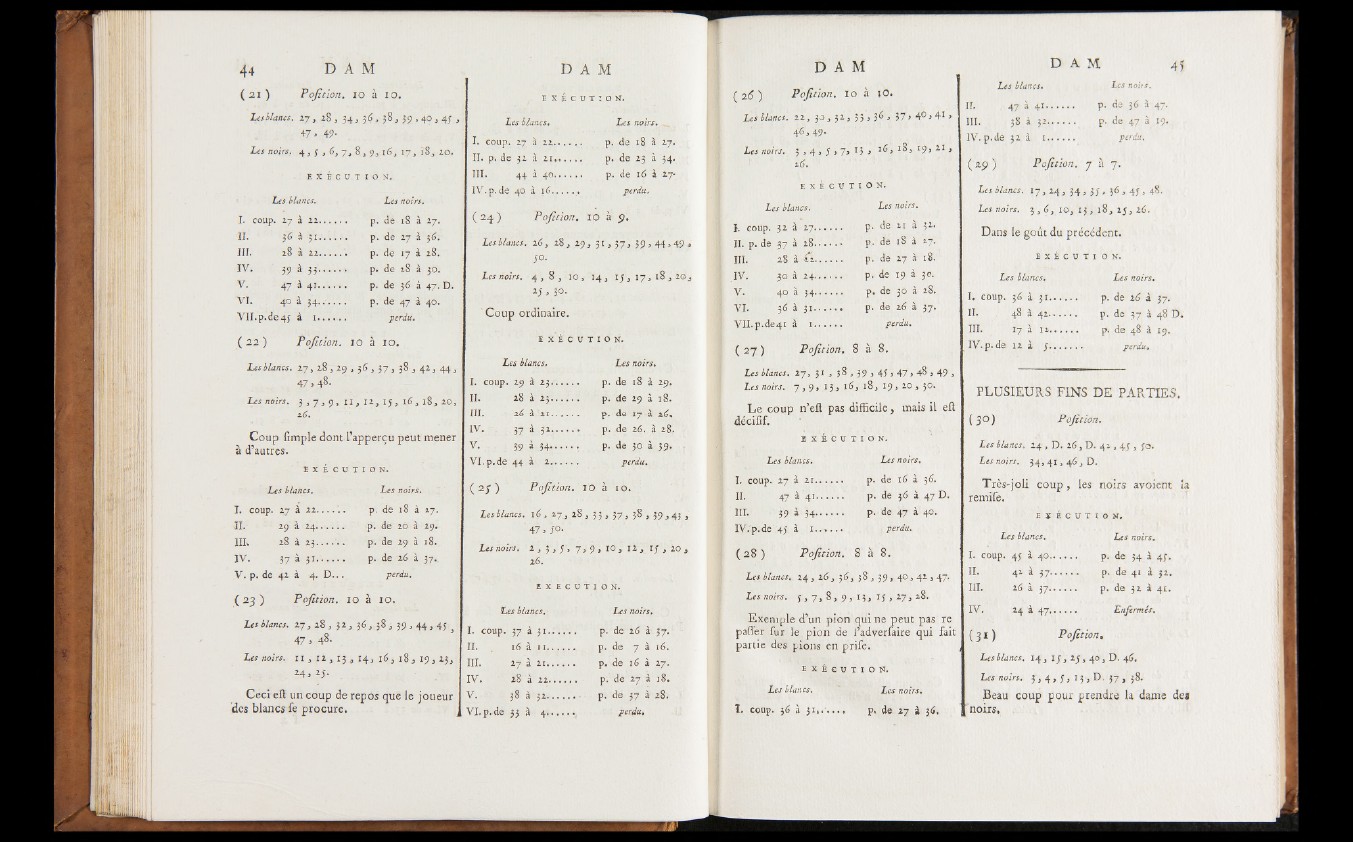 44 D A M
( 21 ) Poſition. 10 à 10.
Les blancs. 27, 28, 34, 36, 38, 39, 40, 45,
47, 49.
Les noirs. 4, 5, 6, 7, 8, 9, 16, 17, 18, 20.
EXÉCUTION.
Les blancs. Les noirs.
I. coup. 27 à 22...... p. de 18 à 27.
II. 36 à 31...... p. de 27 à 36.
III. 28 à 22...... p. de 17 à 28.
IV. 39 à 33...... p. de 28 à 30.
V. 47 à 41...... p. de 36 à 47. D.
VI. 40 à 34...... p. de 47 à 40.
VII. p. de 45 à 1...... perdu.
( 22 ) Poſition. 10 à 10.
Les blancs. 27, 28, 29, 36, 37, 38, 42, 44,
47, 48.
Les noirs. 3, 7, 9, 11, 12, 15, 16, 18, 20,
26.
Coup ſimple dont l'apperçu peut mener
à d'autres.
EXÉCUTION.
Les blancs. Les noirs.
I. coup. 27 à 22...... p. de 18 à 27.
II. 29 à 24...... p. de 20 à 29.
III. 28 à 23...... p. de 29 à 18.
IV. 37 à 31...... p. de 26 à 37.
V. p. de 42 à 4. D... perdu.
( 23 ) Poſition. 10 à 10.
Les blancs. 27, 28, 32, 36, 38, 39, 44, 45,
47, 48.
Les noirs. 11, 12, 13, 14, 16, 18, 19, 23,
24, 25.
Ceci eſt un coup de repos que le joueur
des blancs ſe procure.
D A M
EXÉCUTION.
Les blancs. Les noirs.
I. coup. 27 à 22...... p. de 18 à 27.
II. p. de 32 à 21...... p. de 23 à 34.
III. 44 à 40...... p. de 16 à 27.
IV. p. de 40 à 16...... perdu.
( 24 ) Poſition. 10 à 9.
Les blancs. 26, 28, 29, 31, 37, 39, 44, 49,
50.
Les noirs. 4, 8, 10, 14, 15, 17, 18, 20,
25, 30.
Coup ordinaire.
EXÉCUTION.
Les blancs. Les noirs.
I. coup. 29 à 23...... p. de 18 à 29.
II. 28 à 23...... p. de 29 à 18.
III. 26 à 21...... p. de 17 à 26.
IV. 37 à 32...... p. de 26. à 28.
V. 39 à 34...... p. de 30 à 39.
VI. p. de 44 à 2...... perdu.
( 25 ) Poſition. 10 à 10.
Les blancs. 16, 27, 28, 33, 37, 38, 39, 43,
47, 50.
Les noirs. 2, 3, 5, 7, 9, 10, 12, 15, 20,
26.
EXECUTION.
Les blancs. Les noirs.
I. coup. 37 à 31...... p. de 26 à 37.
II. 16 à 11...... p. de 7 à 16.
III. 27 à 21...... p. de 16 à 27.
IV. 28 à 22...... p. de 27 à 18.
V. 38 à 32...... p. de 37 à 28.
VI. p. de 33 à 4...... perdu.
D A M
( 26 ) Poſition. 10 à 10.
Les blancs. 22, 30, 32, 33, 36, 37, 40, 41,
46, 49.
Les noirs. 3, 4, 5, 7, 13, 16, 18, 19, 21,
26.
EXÉCUTION.
Les blancs. Les noirs.
I. coup. 32 à 27...... p. de 21 à 32.
II. p. de 37 à 28...... p. de 18 à 27.
III. 28 à 22...... p. de 27 à 18.
IV. 30 à 24...... p. de 19 à 30.
V. 40 à 34...... p. de 30 à 28.
VI. 36 à 31...... p. de 26 à 37.
VII. p. de 41 à 1...... perdu.
( 27 ) Poſition. 8 à 8.
Les blancs. 27, 31, 38, 39, 45, 47, 48, 49,
Les noirs. 7, 9, 13, 16, 18, 19, 20, 30.
Le coup n'eſt pas difficile, mais il eſt
déciſif.
EXÉCUTION.
Les blancs. Les noirs.
I. coup. 27 à 21...... p. de 16 à 36.
II. 47 à 41...... p. de 36 à 47 D.
III. 39 à 34...... p. de 47 à 40.
IV. p. de 45 à 1...... perdu.
( 28 ) Poſition. 8 à 8.
Les blancs. 24, 26, 36, 38, 39, 40, 42, 47.
Les noirs. 5, 7, 8, 9, 13, 15, 27, 28.
Exemple d'un pion qui ne peut pas re
paſſer ſur le pion de l'adverſaire qui fait
partie des pions en priſe.
EXÉCUTION.
Les blancs. Les noirs.
I. coup. 36 à 31...... p. de 27 à 36.
D A M 45
Les blancs. Les noirs.
II. 47 à 41...... p. de 36 à 47.
III. 38 à 32...... p. de 47 à 19.
IV. p. de 32 à 1...... perdu.
( 29 ) Poſition. 7 à 7.
Les blancs. 17, 24, 34, 35, 36, 45, 48.
Les noirs. 3, 6, 10, 15, 18, 25, 26.
Dans le goût du précédent.
EXÉCUTION.
Les blancs. Les noirs.
I. coup. 36 à 31...... p. de 26 à 37.
II. 48 à 42...... p. de 37 à 48 D.
III. 17 à 12...... p. de 48 à 19.
IV. p. de 12 à 5....... perdu.
PLUSIEURS FINS DE PARTIES.
( 30 ) Poſition.
Les blancs. 24, D. 26, D. 42, 45, 50.
Les noirs. 34, 41, 46, D.
Très-joli coup, les noirs avoient la
remiſe.
EXÉCUTION.
Les blancs. Les noirs.
I. coup. 45 à 40...... p. de 34 à 45.
II. 42 à 37...... p. de 41 à 32.
III. 26 à 37...... p. de 32 à 41.
IV. 24 à 47...... Enfermés.
( 31 ) Poſition.
Les blancs. 14, 15, 25, 40, D. 46.
Les noirs. 3, 4, 5, 13, D. 37, 38.
Beau coup pour prendre la dame des
noirs.